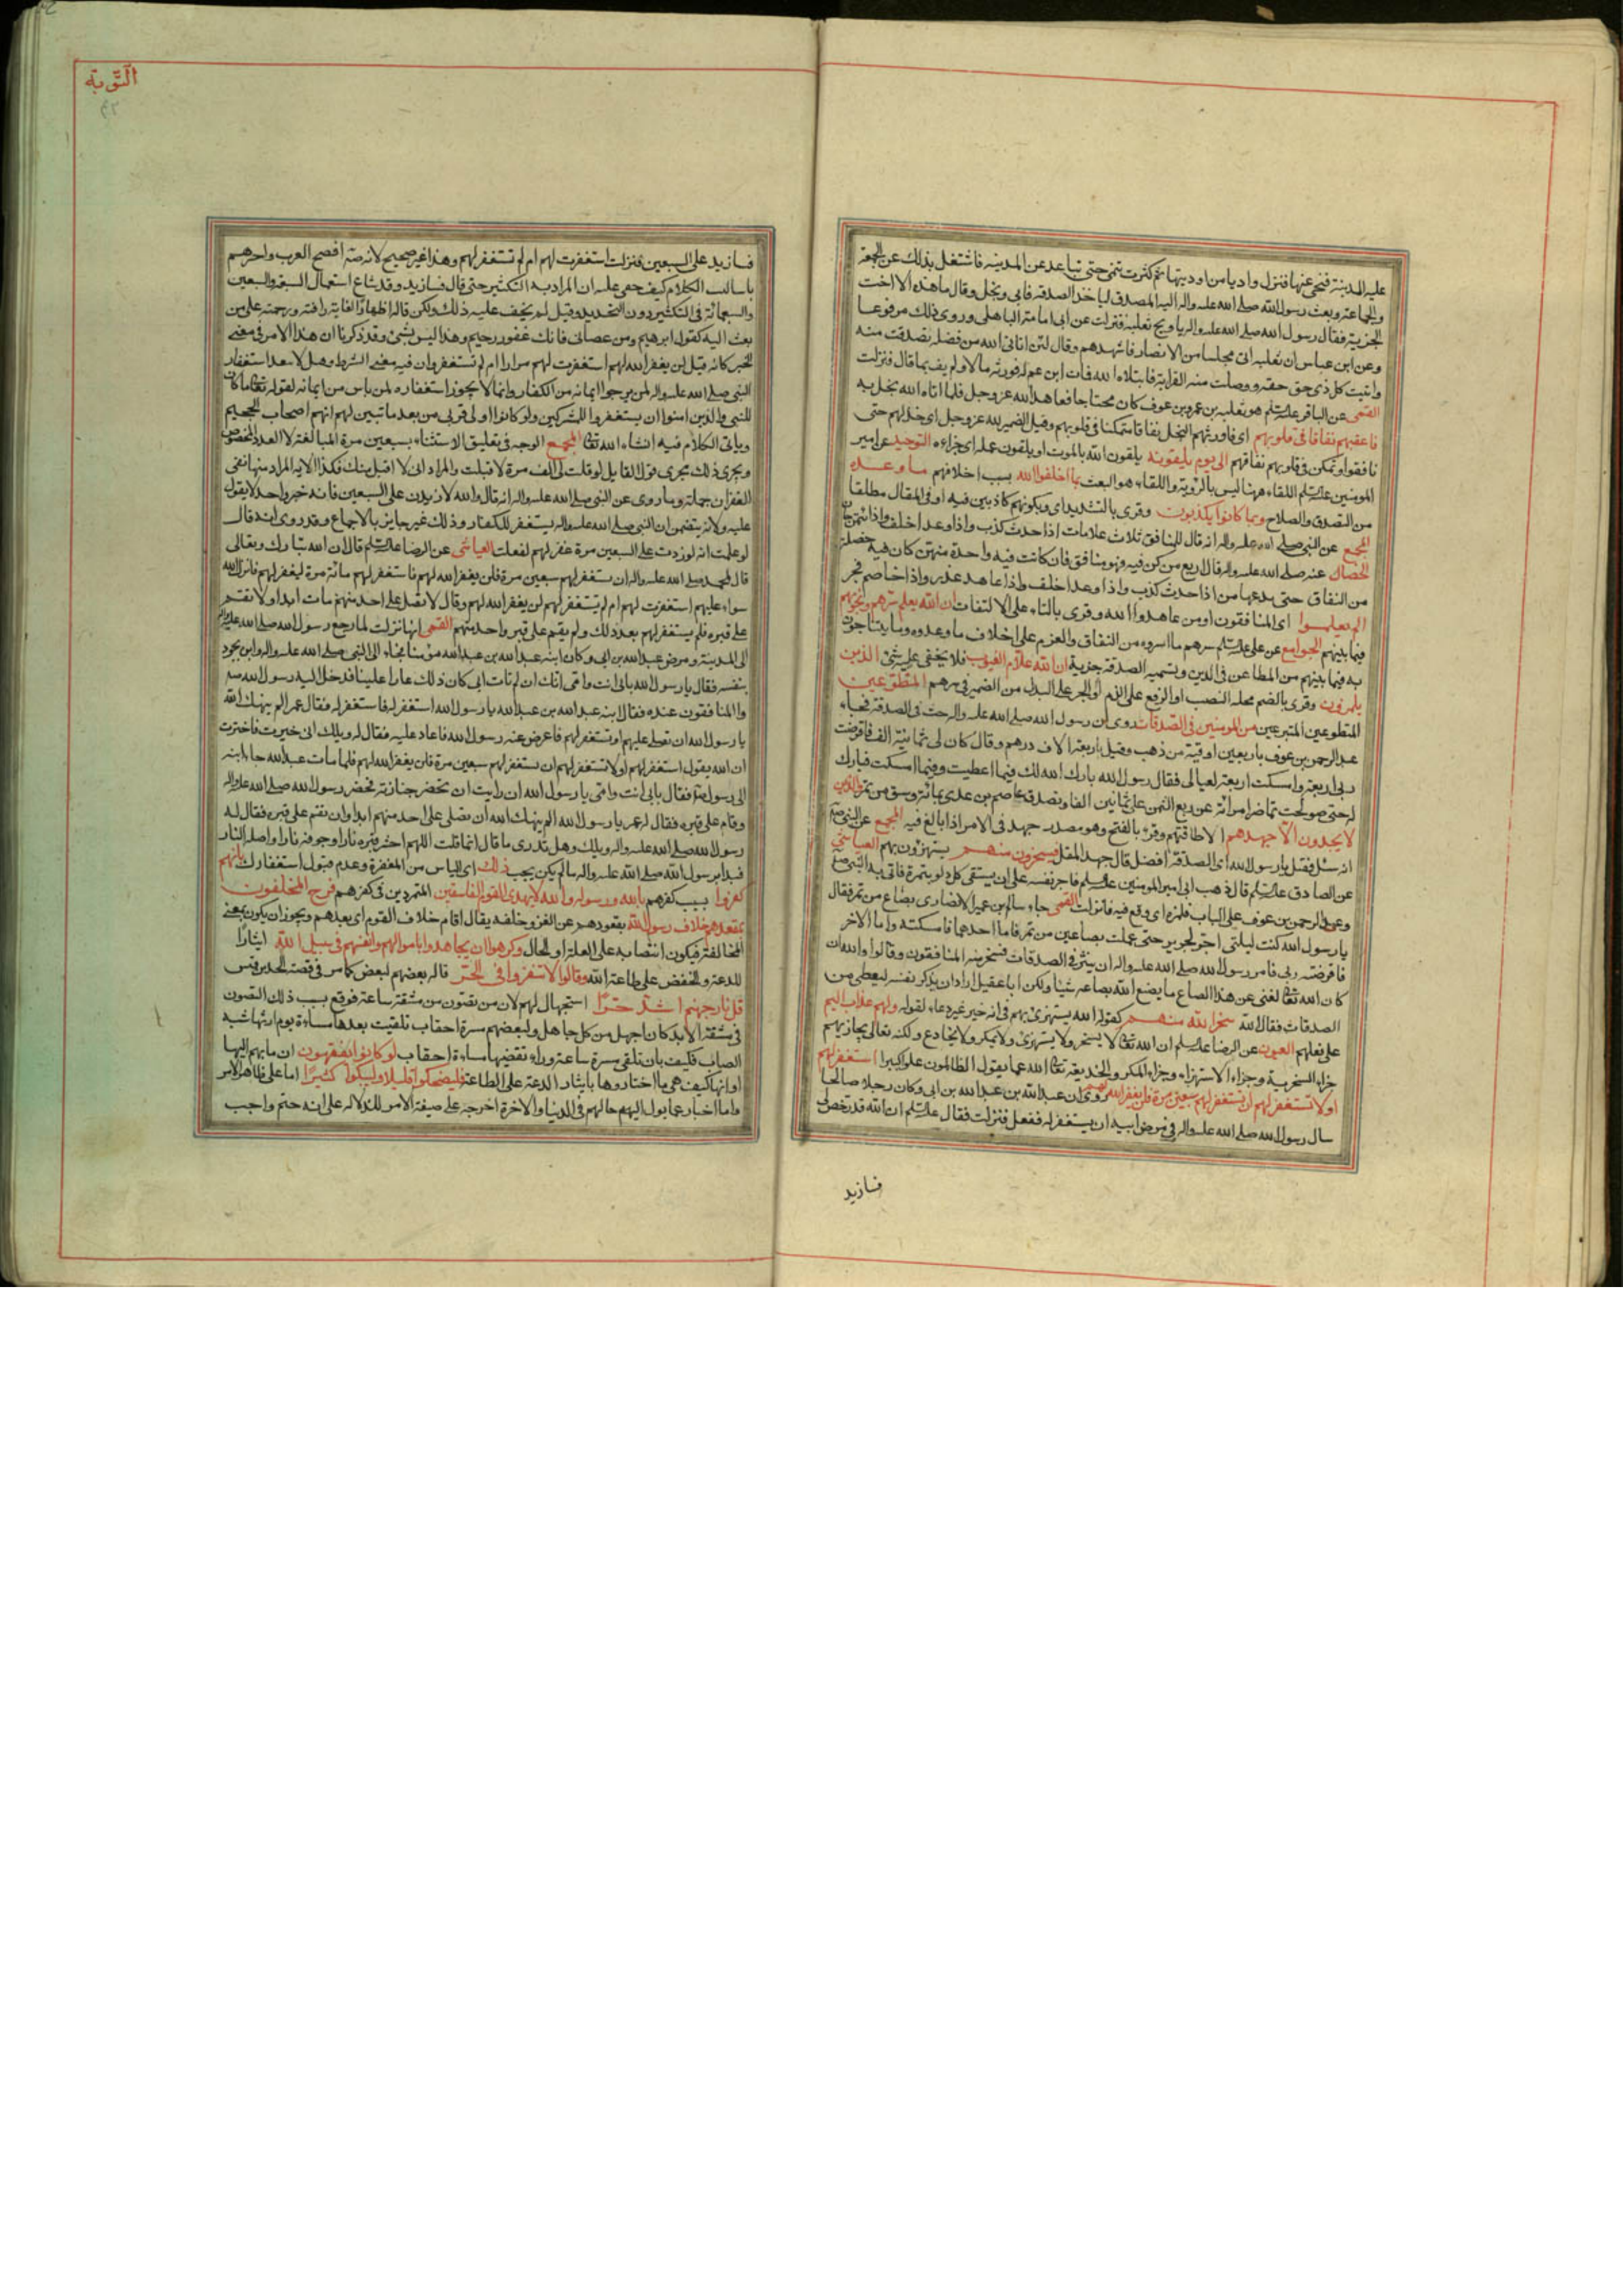 عليه المدينة فتنحى عنها فنزل واديا من اوديتها ثم كثرت تنمى حتى تباعد عن المدينه فاشتغل بذلك عن الجمعة
والجماعة وبعث رسول الله صلى الله عليه واله اليه المصدق لياخذ الصدقه فابى وبخل وقال ما هذه الا اخت
الجزية فقال رسول الله صلى الله عليه واله يا ويح ثعلبة فنزلت عن ابى امامة الباهلى وروى ذلك مرفوعا
وعن ابن عباس ان ثعلبه اتى مجلسا من الانصار فاشهدهم وقال لئن اتانى الله من فضله تصدقت منه
واتيت كل ذى حق حقه ووصلت منه القرابة فابتلاه الله فمات ابن عم له فورثه مالا ولم يف بما قال فنزلت
القمى عن الباقر عليه السلم هو ثعلبه بن عمرو بن عوف كان محتاجا فعاهد الله عز وجل فلما اتاه الله بخل به
فاعقبهم نفاقا فى قلوبهم اى فاورثهم البخل نفاقا متمكنا فى قلوبهم وقيل الضمير لله عز وجل اى خذلهم حتى
نافقوا وتمكن فى قلوبهم نفاقهم الى يوم يلقونه يلقون الله بالموت او يلقون عمله اى جزاءه التوحيد عن امير
المومنين عليه السلم اللقاء ههنا ليس بالرؤية واللقاء هو البعث بما اخلفوا الله بسبب اخلافهم ما وعدوه
من التصدق والصلاح وبما كانوا يكذبون وقرى بالتشديد اى وبكونهم كاذبين فيه او فى المقال مطلقا
المجمع عن النبى صلى الله عليه واله انه قال للمنافق ثلاث علامات اذا حدث كذب واذا وعد اخلف واذا ائتمن خان
الخصال عنه صلى الله عليه واله قال اربع من كن فيه فهو منافق فان كانت فيه واحدة منهن كان فيه خصلة
من النفاق حتى يدعها من اذا حدث كذب واذا وعد اخلف واذا عاهد غدر واذا خاصم فجر
الم يعلموا اى المنافقون او من عاهدوا الله وقرى بالتاء على الالتفات ان الله يعلم سرهم ونجويهم
فيما بينهم الجوامع عن على عليه السلم سرهم ما اسروه من النفاق والعزم على اخلاف ما وعدوه وما يتناجون
به فيما بينهم من المطاعن فى الدين وتسميه الصدقة جزية ان الله علام الغيوب فلا يخفى عليه شئ الذين
يلمزون وقرى بالضم محله النصب او الرفع على الذم او الجر على البدل من الضمير فى سرهم المطوعين
المتطوعين المتبرعين من المومنين فى الصدقات روى ان رسول الله صلى الله عليه واله حث فى الصدقة فجاء
عبد الرحمن بن عوف باربعين اوقية من ذهب وقيل باربعة الاف درهم وقال كان لى ثمانية الف فاقرضت
ربى اربعة وامسكت اربعة لعيالى فقال رسول الله بارك الله لك فيما اعطيت وفيما امسكت فبارك
له حتى صولحت تماضر امراته عن ربع الثمن على ثمانين الفا وتصدق عاصم بن عدى بمائة وسق من تمر والذين
لا يجدون الا جهدهم الا طاقتهم وقرئ بالفتح وهو مصدر جهد فى الامر اذا بالغ فيه المجمع عن النبى صه
انه سئل فقيل يا رسول الله اى الصدقة افضل قال جهد المقل فيسخرون منهم يستهزؤن بهم العياشى
عن الصادق عليه السلم قال ذهب ابى امير المومنين عليه السلم فاجر نفسه على ان يستقى كل دلو بتمرة فاتى به النبى صع
وعبد الرحمن بن عوف على الباب فلمزه اى وقع فيه فانزلت القمى جاء سالم بن عمير الانصارى بصاع من تمر فقال
يا رسول الله كنت ليلتى اجر الجرير حتى عملت بصاعين من تمر فاما احدهما فامسكته واما الاخر
فاقرضته ربى فامر رسول الله صلى الله عليه واله ان ينثره فى الصدقات فسخر منه المنافقون وقالوا والله ان
كان الله تعا لغنى عن هذا الصاع ما يضع الله بصاعه شيئا ولكن ابا عقيل اراد ان يذكر نفسه ليعطى من
الصدقات فقال الله سخر الله منهم كقوله الله يستهزئ بهم فى انه خبر غير دعاء لقوله ولهم عذاب اليم
على فعلهم العيون عن الرضا عليه السلم ان الله تعا لا يسخر ولا يستهزئ ولا يمكر ولا يخادع ولكنه تعالى يجازيهم
جزاء السخرية وجزاء الاستهزاء وجزاء المكر والخديعة تعا الله عما يقول الظالمون علوا كبيرا استغفر لهم
او لا تستغفر لهم ان تستغفر لهم سبعين مرة فلن يغفر الله لهم روى ان عبد الله بن عبد الله بن ابى وكان رجلا صالحا
سال رسول الله صلى الله عليه واله فى مرض ابيه ان يستغفر له ففعل فنزلت فقال عليه السلم ان الله قد رخص لى
فسازيد
التوبة
فسازيد على السبعين فنزلت استغفرت لهم ام لم تستغفر لهم وهذا غير صحيح لانه صه افصح العرب واخبرهم
باساليب الكلام كيف خفى عليه ان المراد به التكثير حتى قال فسازيد وقد شاع استعمال السبعة والسبعين
والسبعمائة فى التكثير دون التحديد وقيل لم يخف عليه ذلك ولكن قاله اظهارا لغاية رافته ورحمته على من
بعث اليه كقول ابرهيم ومن عصانى فانك غفور رحيم وهذا ليس بشئ وقد ذكرنا ان هذا الامر فى معنى
الخبر كانه قيل لن يغفر الله لهم استغفرت لهم مرارا ام لم تستغفر وان فيه معنى الشرط وهل لا سعد استغفار
النبى صلى الله عليه واله لمن يرجوا ايمانه من الكفار وانما لا يجوز استغفاره لمن ياس من ايمانه لقوله تعا ما كان
للنبى والذين امنوا ان يستغفروا للمشركين ولو كانوا اولى قربى من بعد ما تبين لهم انهم اصحاب الجحيم
وياتى الكلام فيه انشاء الله تعا المجمع الوجه فى تعليق الاستثناء بسبعين مرة المبالغة لا العدد المخصوص
ويجرى ذلك مجرى قول القايل لو قلت لى الف مرة لا قبلت والمراد انى لا اقبل منك فكذا الايه المراد منها نفى
الغفران جملة وما روى عن النبى صلى الله عليه واله انه قال والله لازيدن على السبعين فانه خبر واحد لا يعول
عليه ولانه يتضمن ان النبى صلى الله عليه واله يستغفر للكفار وذلك غير جايز بالاجماع وقد روى انه قال
لو علمت انه لو زدت على السبعين مرة غفر لهم لفعلت العياشى عن الرضا عليه السلم قال ان الله تبارك وتعالى
قال لمحمد صلى الله عليه واله ان تستغفر لهم سبعين مرة فلن يغفر الله لهم فاستغفر لهم مائة مرة ليغفر لهم فانزل الله
سواء عليهم استغفرت لهم ام لم تستغفر لهم لن يغفر الله لهم وقال لا تصل على احد منهم مات ابدا ولا تقم
على قبره فلم يستغفر لهم بعد ذلك ولم يقم على قبر واحد منهم القمى انها نزلت لما رجع رسول الله صلى الله عليه واله
الى المدينة ومرض عبد الله بن ابى وكان ابنه عبد الله بن عبد الله مؤمنا فجاء الى النبى صلى الله عليه واله وابوه يجود
بنفسه فقال يا رسول الله بابى انت وامى انك ان لم تات ابى كان ذلك عارا علينا فدخل اليه رسول الله صه
والمنافقون عنده فقال ابنه عبد الله بن عبد الله يا رسول الله استغفر له فاستغفر له فقال عمر الم ينهك الله
يا رسول الله ان تصلى عليهم او تستغفر لهم فاعرض عنه رسول الله فاعاد عليه فقال له ويلك انى خيرت فاخترت
ان الله يقول استغفر لهم او لا تستغفر لهم ان تستغفر لهم سبعين مرة فلن يغفر الله لهم فلما مات عبد الله جاء ابنه
الى رسول الله صه فقال بابى انت وامى يا رسول الله ان رايت ان تحضر جنازته فحضر رسول الله صلى الله عليه واله
وقام على قبره فقال له عمر يا رسول الله الم ينهك الله ان تصلى على احد منهم ابدا وان تقم على قبره فقال له
رسول الله صلى الله عليه واله ويلك وهل تدرى ما قلت انما قلت اللهم احش قبره نارا وجوفه نارا واصله النار
فبدا من رسول الله صلى الله عليه واله ما لم يكن يحب ذلك اى الياس من المغفرة وعدم قبول استغفارك بانهم
كفروا بسبب كفرهم بالله ورسوله والله لا يهدى القوم الفاسقين المتمردين فى كفرهم فرح المخلفون
بمقعدهم خلاف رسول الله بقعودهم عن الغزو خلفه يقال اقام خلاف القوم اى بعدهم ويجوز ان يكون بمعنى
المخالفة فيكون انتصابه على العلة او الحال وكرهوا ان يجاهدوا باموالهم وانفسهم فى سبيل الله ايثارا
للدعة والخفض على طاعة الله وقالوا لا تنفروا فى الحر قاله بعضهم لبعض كما مر فى قصة الجد بن قيس
قل نار جهنم اشد حرا استجهال لهم لان من تصون من مشقة ساعة فوقع بسبب ذلك التصون
فى مشقة الابد كان اجهل من كل جاهل ولبعضهم مسرة احقاب تلقيت بعدها مساءة يوم اريها شبه
الصاب فكيف بان تلقى مسرة ساعة وراء تقضيها مساءة احقاب لو كانوا يفقهون ان مابهم اليها
او انها كيف هى ما اختاروها بايثار الدعة على الطاعة فليضحكوا قليلا وليبكوا كثيرا اما على ظاهر الامر
واما اخبار عما يول اليهم حالهم فى الدنيا والاخرة اخرجه على صيغة الامر للدلاله على انه حتم واجب